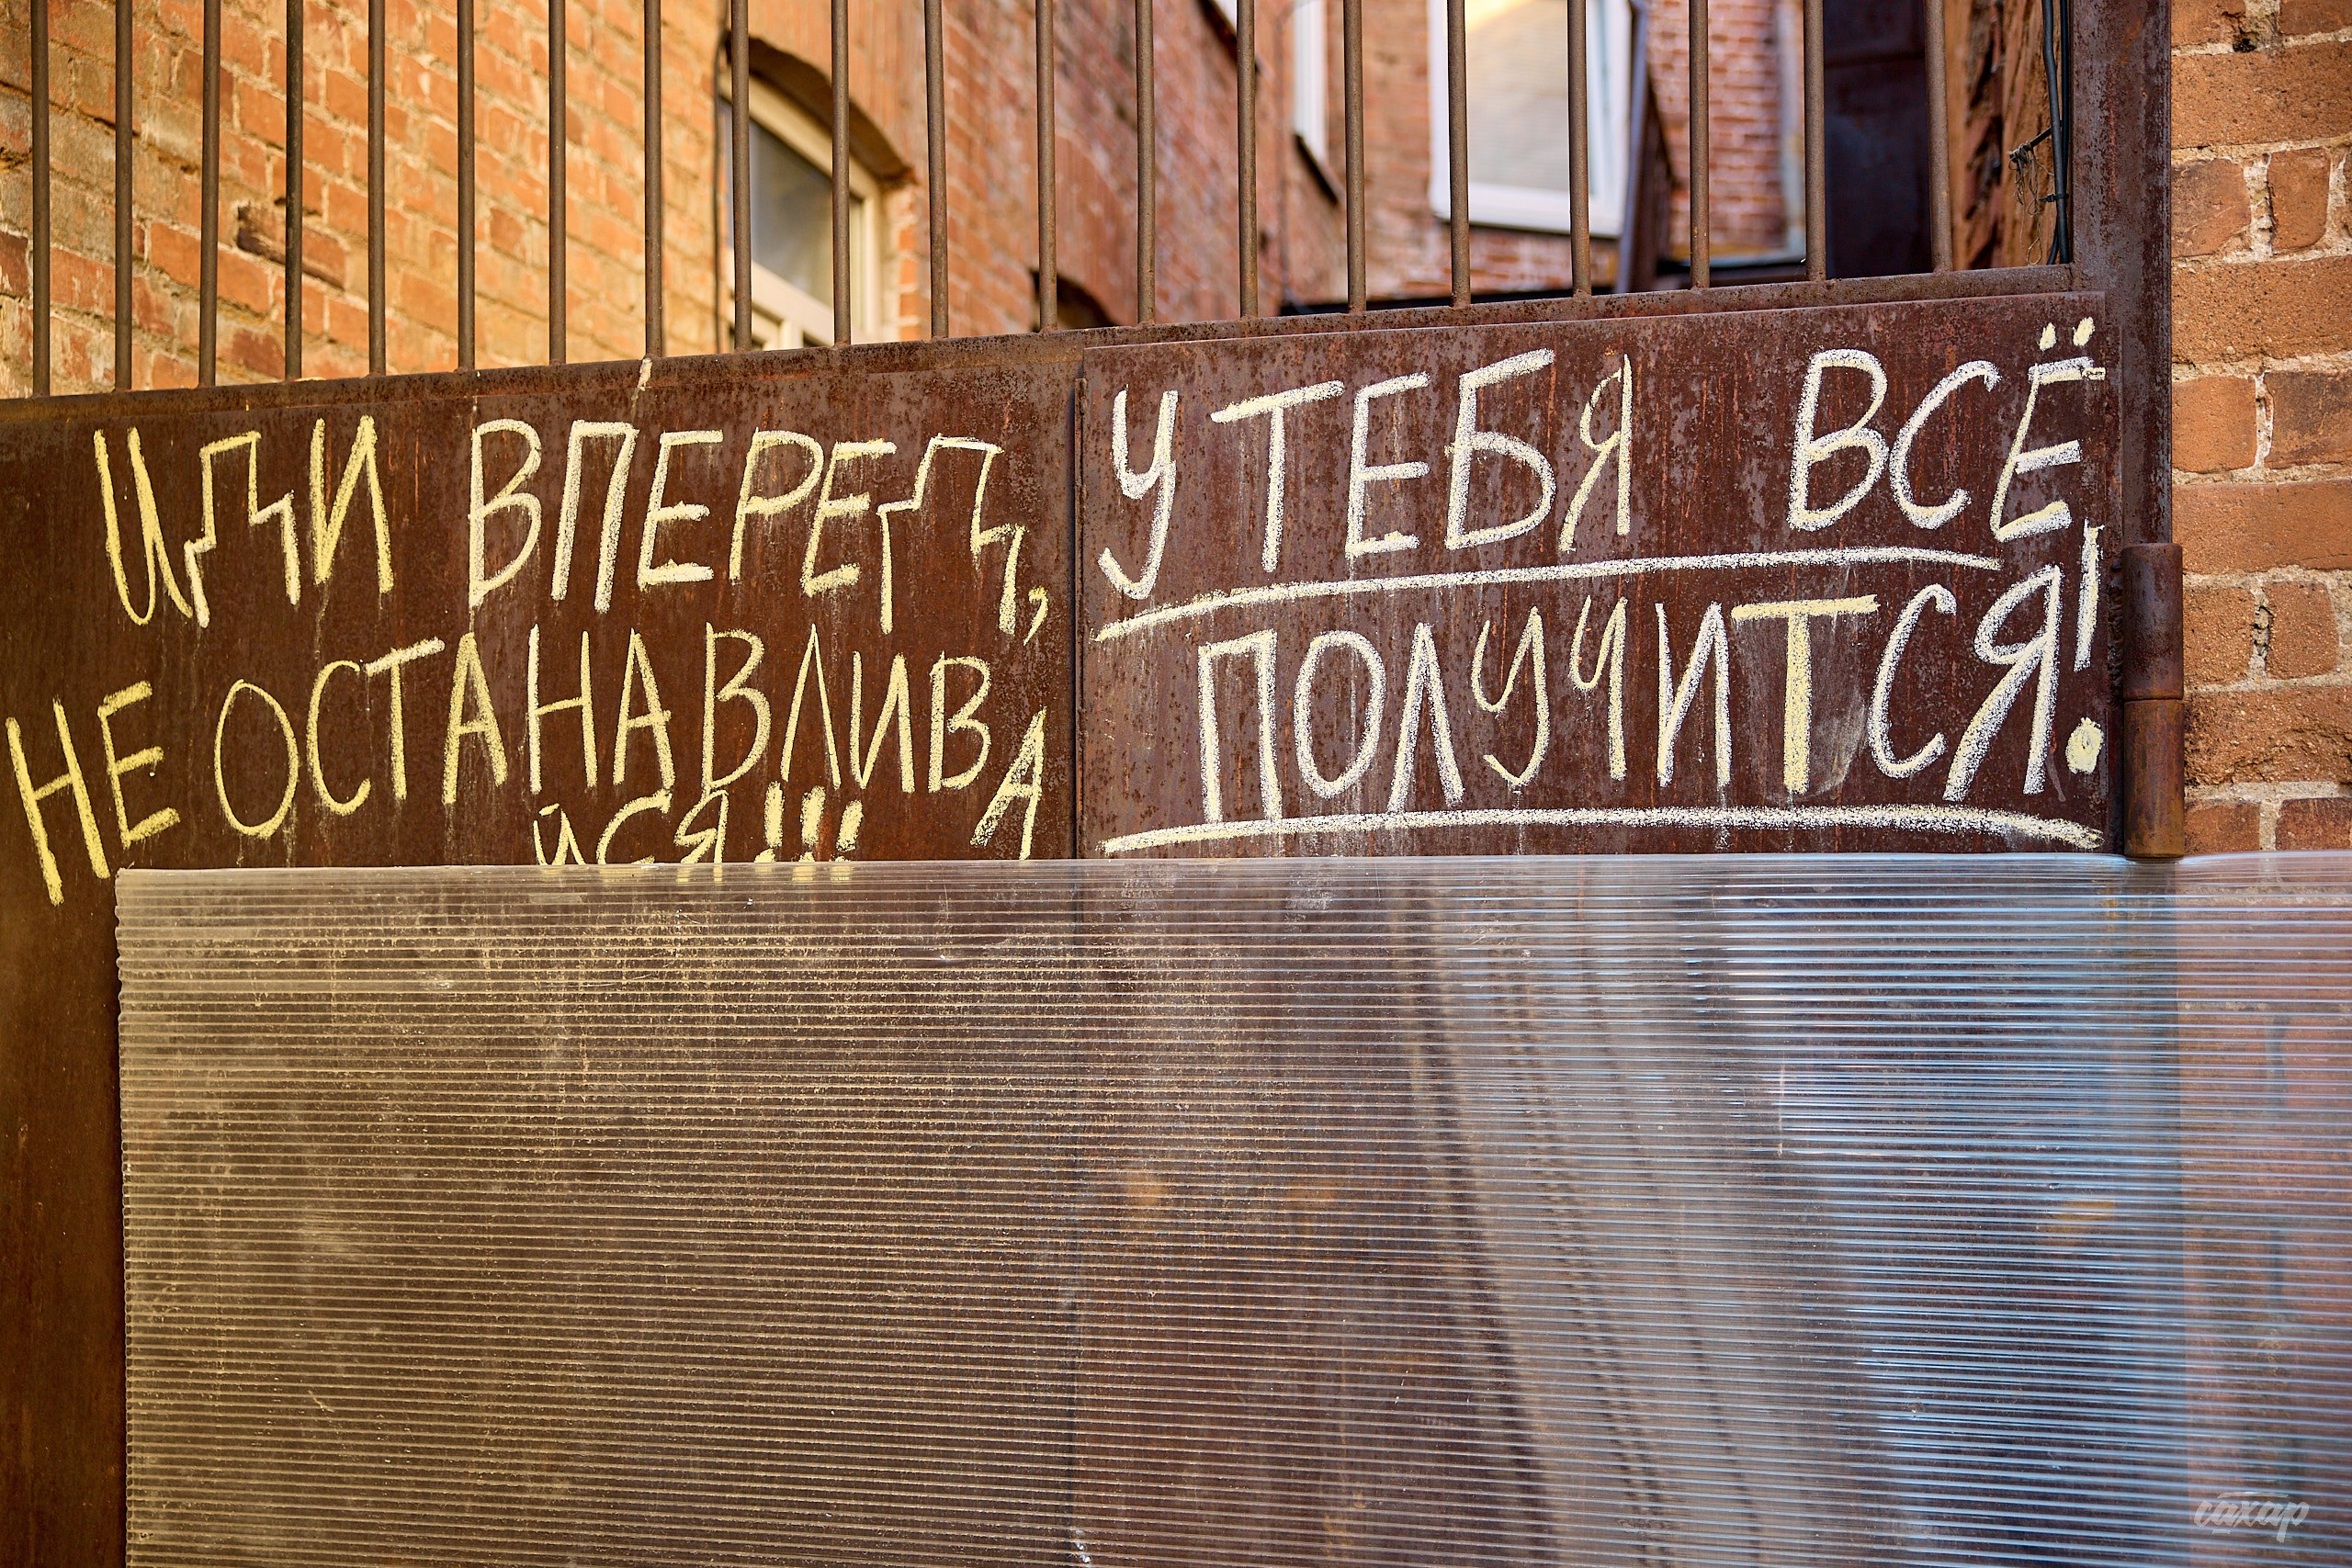 ИДИ ВПЕРЕД,
НЕ ОСТАНАВЛИВА
ЙСЯ!!!
У ТЕБЯ ВСЁ
ПОЛУЧИТСЯ!
сахар